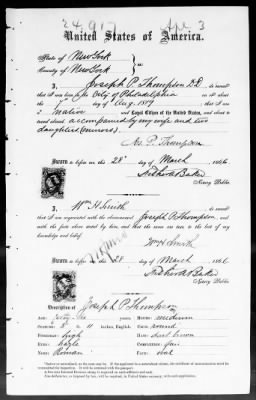 24,917 Apr 3
United States of America.
State of New York
County of New York
I, Joseph P. Thompson D.D. do swear
that I was born in the City of Philadelphia
day of Aug. 1819 that I am
a Native and Loyal Citizen of the United States, and about to
travel abroad, accompanied by my wife and two
daughters (minors).
Jos. P. Thompson
Sworn to before me this 28 day of March 1866
Notary Public.
I, Wm H Smith do swear
that I am acquainted with the above-named Joseph P. Thompson and
with the facts above stated by him, and that the same are true, to the best of my
knowledge and belief.
Wm H Smith
Sworn to before me this 28 day of March 1866
Notary Public.
Description of Joseph P. Thompson
Age: forty-six
Mouth: medium
Stature: 5 11 inches, English.
Chin: round
Forehead: high
Hair: dark brown
Eyes: hazle
Complexion: fair
Nose: Roman
Face: oval